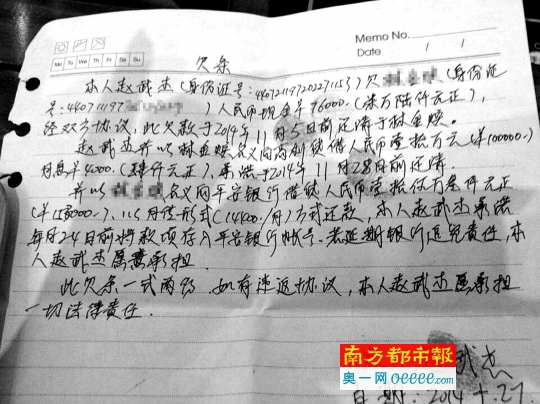 Memo No.
Date / /
Mo Tu We Th Fr Sa Su
欠条
本人赵武杰(身份证号:440721197202271153)欠(身份证
号:440711197)人民币现金¥76000.(柒万陆仟元正),
经双方协议,此欠款于2014年11月5日前还清于林金
赵武杰并以林金名义向高利贷借人民币壹拾万元(¥100000.)
月息¥4000.(肆仟元正),承诺于2014年11月28日前还清
并以名义向平安银行借贷人民币壹拾伍万叁仟元正
(¥153000.),以月供形式(14400/月)方式还款,本人赵武杰承诺
每月24日前将款项存入平安银行帐号.若延期银行追究责任,本
人赵武杰愿意承担.
此欠条一式两份,如有违返协议,本人赵武杰愿承担
一切法律责任.
南方都市報
奥一网 oeeee.com
武杰
日期:2014.10.27.